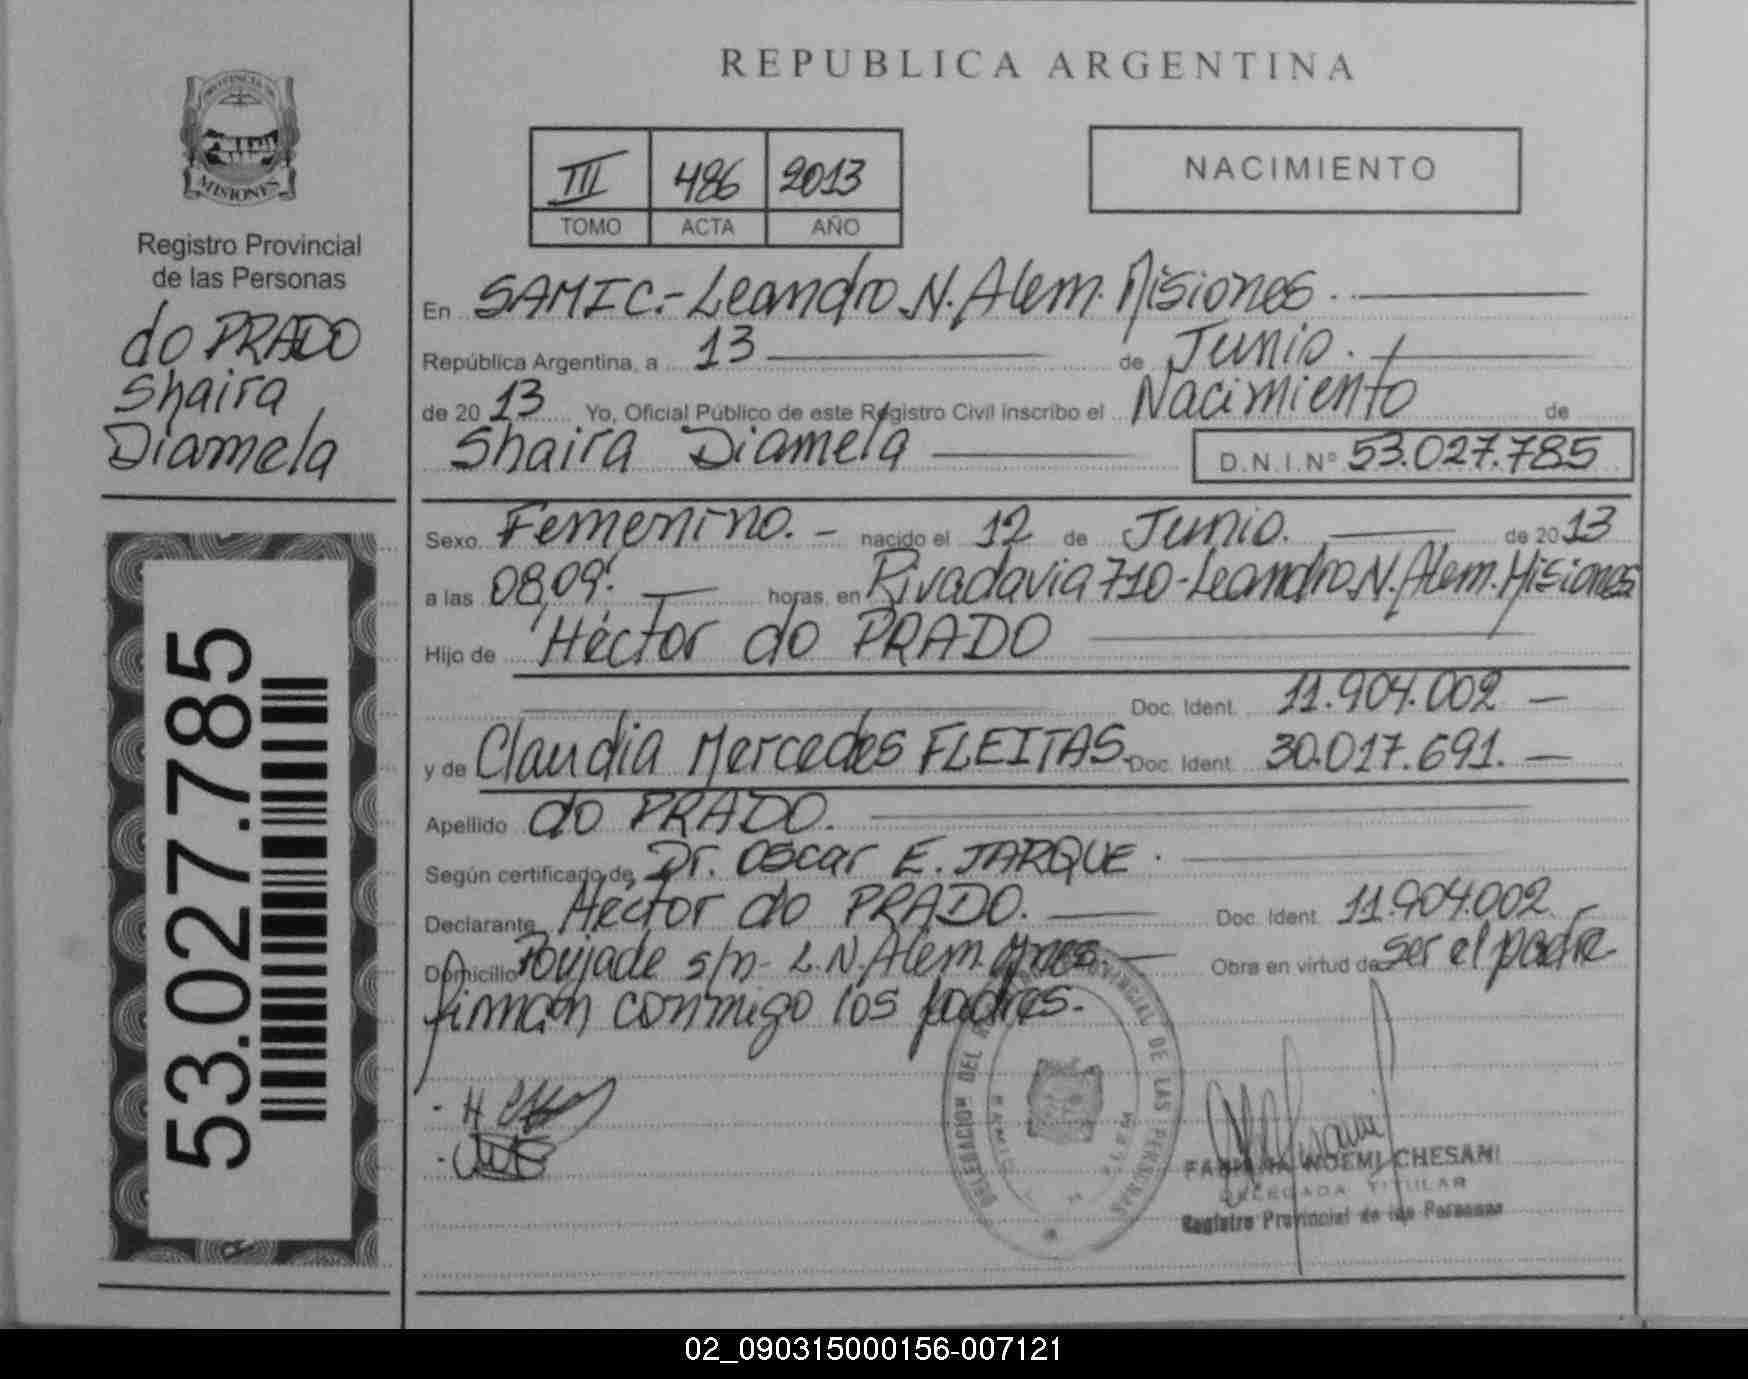 PROVINCIA DE
MISIONES
Registro Provincial
de las Personas
do PRADO
Shaira
Diamela
53.027.785
REPUBLICA ARGENTINA
III 486 2013
TOMO ACTA AÑO
NACIMIENTO
En SAMIC.- Leandro N. Alem. Misiones.
República Argentina, a 13 de Junio.
de 20 13 Yo, Oficial Público de este Registro Civil inscribo el Nacimiento de
Shaira Diamela D.N.I.Nº 53.027.785
Sexo Femenino.- nacido el 12 de Junio. de 20 13
a las 08,09. horas, en Rivadavia 710-Leandro N. Alem. Misiones
Hijo de Héctor do PRADO
Doc. Ident. 11.904.002 -
y de Claudia Mercedes FLEITAS. Doc. Ident. 30.017.691. -
Apellido do PRADO.
Según certificado de Dr. Oscar E. JARQUE.
Declarante Héctor do PRADO. Doc. Ident. 11.904.002 -
Domicilio Poujade s/n- L.N. Alem. Obra en virtud de ser el padre
firman conmigo los padres.
DELEGACION DEL PROVINCIAL DE LAS PERSONAS
NOEMI CHESANI
DELEGADA TITULAR
Registro Provincial de las Personas
02_090315000156-007121